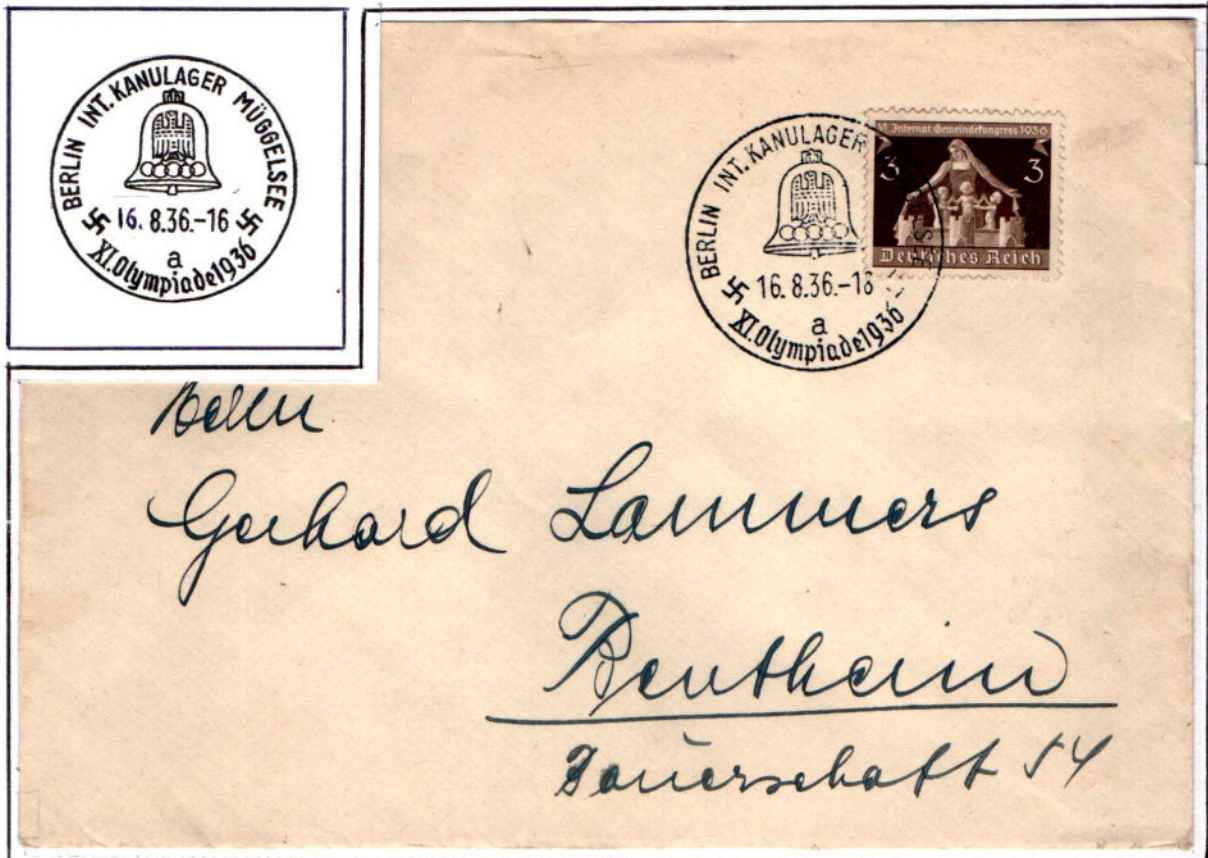 BERLIN INT. KANULAGER MÜGGELSEE
16. 8.36.-16
a
XI. Olympiade 1936
BERLIN INT. KANULAGER
16. 8.36.-18
a
XI. Olympiade 1936
VI. Internat. Gemeindekongress 1936
3 3
Deutsches Reich
Gerhard Lammers
Bentheim
Bauerschaft 54